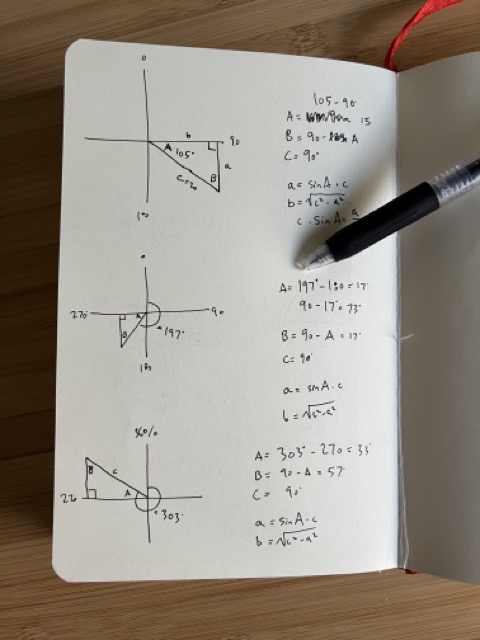 0
b
90
A
105°
a
B
c=20
180
105-90
A = 15
B = 90 - A
C = 90°
a = sinA · c
b = √c² - a²
c · sinA = a
0
270
A
90
B
197°
180
A = 197° - 180 = 17°
90 - 17° = 73°
B = 90 - A = 17°
C = 90°
a = sinA · c
b = √c² - a²
360/0
B
c
A
303°
A = 303° - 270 = 33°
B = 90 - A = 57°
C = 90°
a = sinA · c
b = √c² - a²